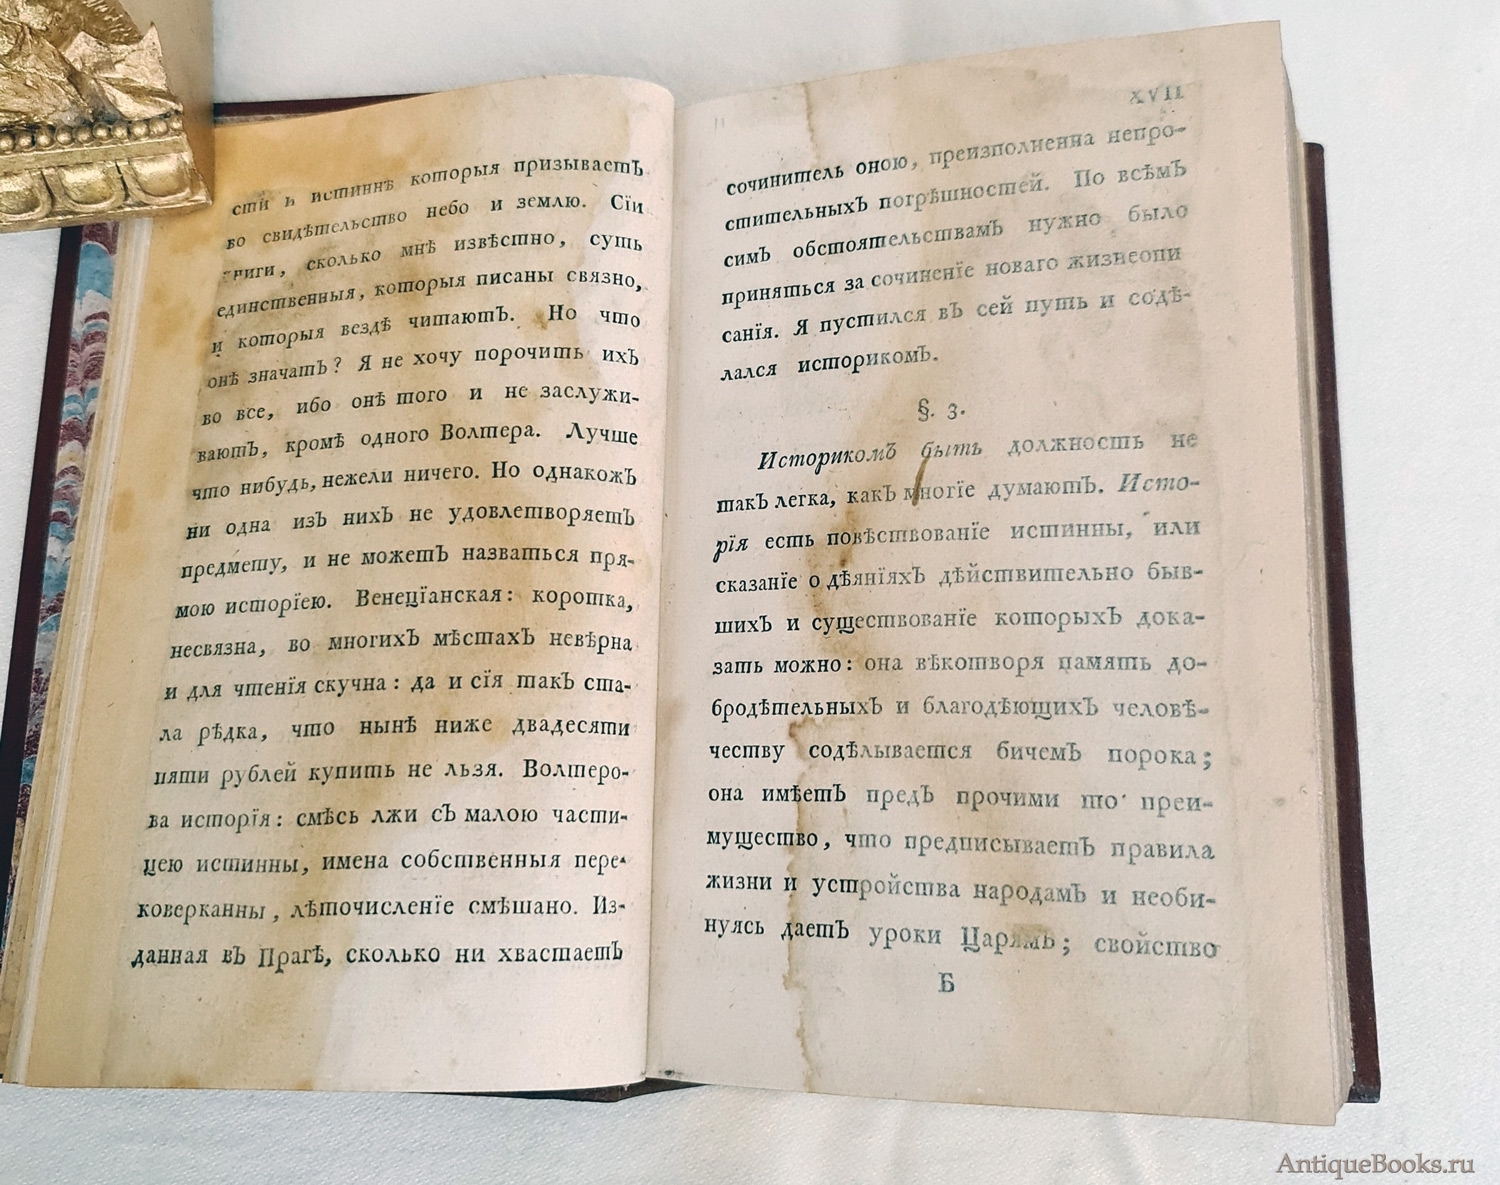 сти и истиннѣ которыя призываетъ
во свидѣтельство небо и землю. Сіи
книги, сколько мнѣ извѣстно, суть
единственныя, которыя писаны связно,
и которыя вездѣ читаютъ. Но что
онѣ значатъ? Я не хочу порочить ихъ
во все, ибо онѣ того и не заслужи-
ваютъ, кромѣ одного Волтера. Лучше
что нибудь, нежели ничего. Но однакожъ
ни одна изъ нихъ не удовлетворяетъ
предмету, и не можетъ назваться пря-
мою исторіею. Венеціанская: коротка,
несвязна, во многихъ мѣстахъ невѣрна
и для чтенія скучна: да и сія такъ ста-
ла рѣдка, что нынѣ ниже двадесяти
пяти рублей купить не льзя. Волтеро-
ва исторія: смѣсь лжи съ малою части-
цею истинны, имена собственныя пере-
коверканны, лѣточисленіе смѣшано. Из-
данная въ Прагѣ, сколько ни хвастаетъ
XVII
сочинитель оною, преизполненна непро-
стительныхъ погрѣшностей. По всѣмъ
симъ обстоятельствамъ нужно было
приняться за сочиненіе новаго жизнеопи
санія. Я пустился въ сей путь и содѣ-
лался историкомъ.
§. 3.
Историкомъ быть должность не
такъ легка, какъ многіе думаютъ. Исто-
рія есть повѣствованіе истинны, или
сказаніе о дѣяніяхъ дѣйствительно быв-
шихъ и существованіе которыхъ дока-
зать можно: она вѣкотворя память до-
бродѣтельныхъ и благодѣющихъ человѣ-
честву содѣлывается бичемъ порока;
она имѣетъ предъ прочими то преи-
мущество, что предписываетъ правила
жизни и устройства народамъ и необи-
нуясь даетъ уроки Царямъ; свойство
Б
AntiqueBooks.ru